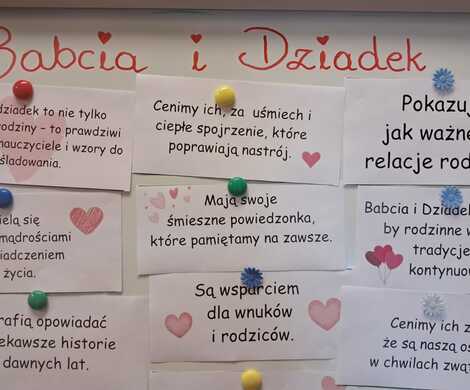 Babcia i Dziadek
dziadek to nie tylko
rodziny - to prawdziwi
nauczyciele i wzory do
śladowania.
Cenimy ich, za uśmiech i
ciepłe spojrzenie, które
poprawiają nastrój.
Pokazuj
jak ważne
relacje rod
elą się
mądrościami
iadczeniem
życia.
Mają swoje
śmieszne powiedzonka,
które pamiętamy na zawsze.
Babcia i Dziadek
by rodzinne w
tradycje
kontynuow
rafią opowiadać
ekawsze historie
dawnych lat.
Są wsparciem
dla wnuków
i rodziców.
Cenimy ich z
że są naszą os
w chwilach zwąt